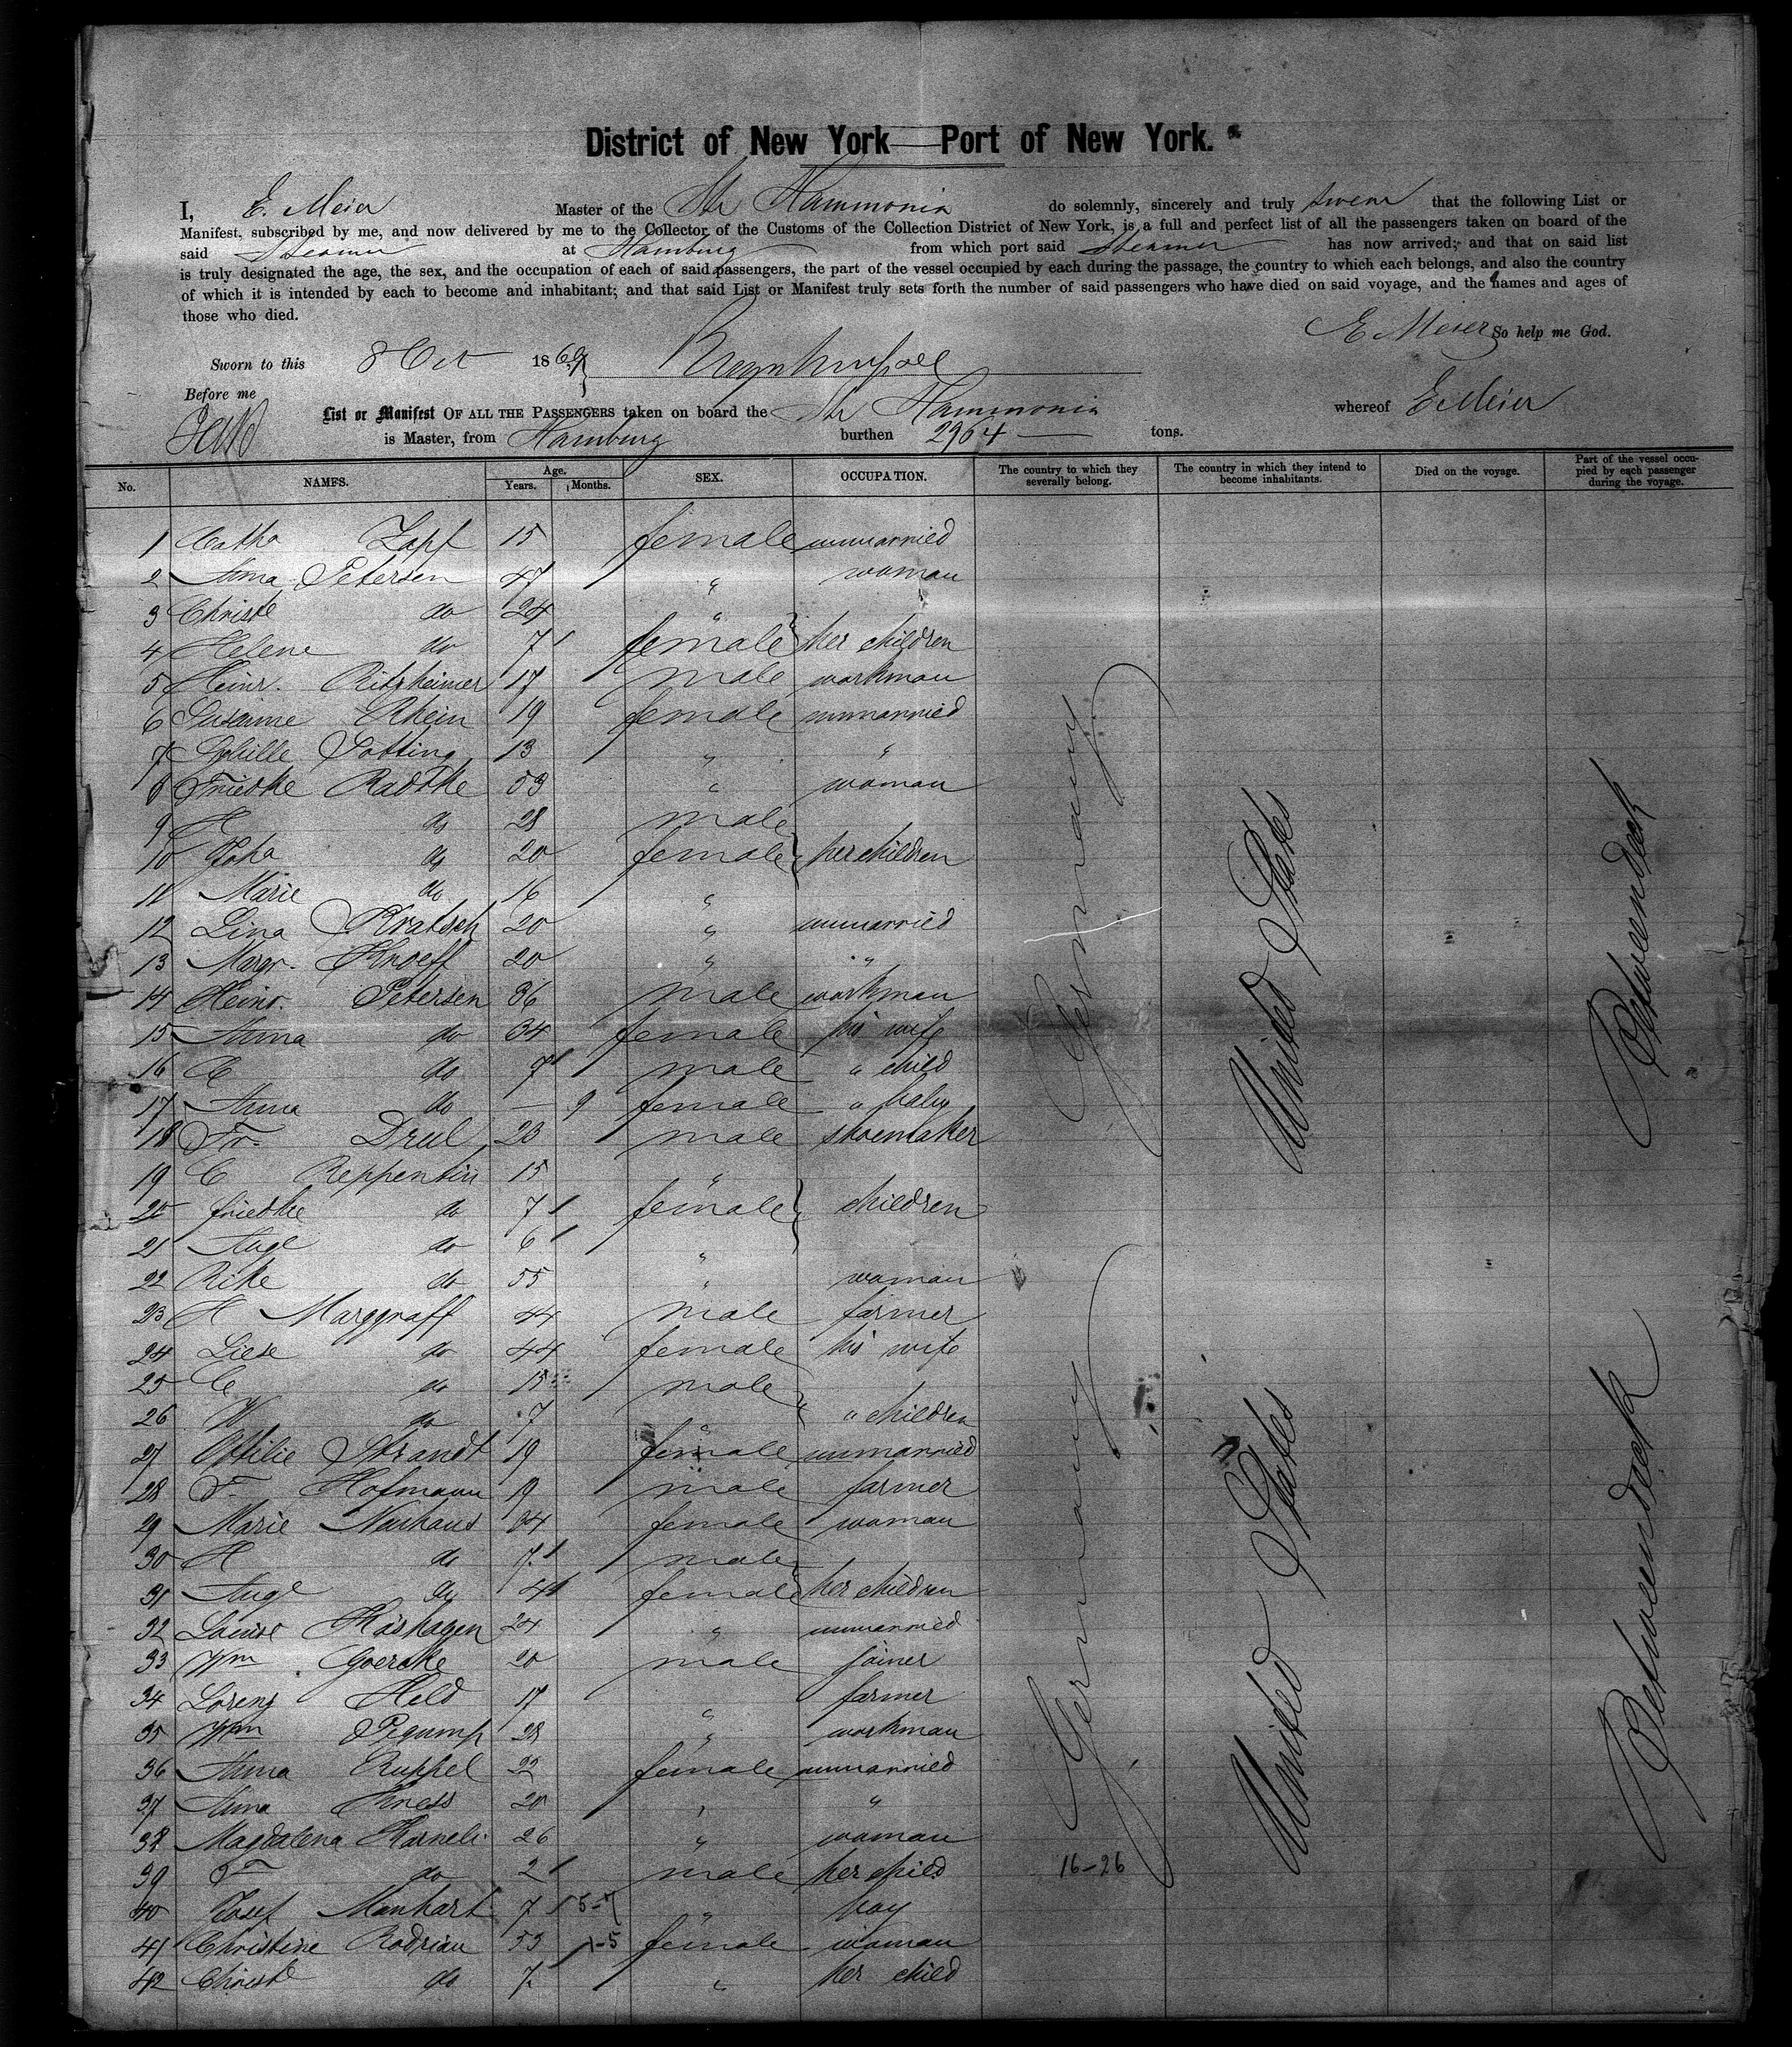 District of New York—Port of New York.
I, E. Meier Master of the Str Hammonia do solemnly, sincerely and truly swear that the following List or
Manifest, subscribed by me, and now delivered by me to the Collector of the Customs of the Collection District of New York, is a full and perfect list of all the passengers taken on board of the
said Steamer at Hamburg from which port said Steamer has now arrived; and that on said list
is truly designated the age, the sex, and the occupation of each of said passengers, the part of the vessel occupied by each during the passage, the country to which each belongs, and also the country
of which it is intended by each to become and inhabitant; and that said List or Manifest truly sets forth the number of said passengers who have died on said voyage, and the names and ages of
those who died.
E Meier So help me God.
Sworn to this 8 Oct 1869
Before me
List or Manifest OF ALL THE PASSENGERS taken on board the Str Hammonia whereof E Meier
is Master, from Hamburg burthen 2964 tons.
No. NAMES. Age. Years. Months. SEX. OCCUPATION. The country to which they severally belong. The country in which they intend to become inhabitants. Died on the voyage. Part of the vessel occupied by each passenger during the voyage.
1 Catha Zapf 15 female unmarried
2 Anna Petersen 47 " woman
3 Christe do 24 "
4 Helene do 7 female her children
5 Heinr. Ritzheimer 17 male workman
6 Susanne Rhein 19 female unmarried
7 Sotting 13 " "
8 Friedke Radtke 53 " woman
9 H do 28 male
10 Joha do 20 female her children
11 Marie do 16 "
12 Lina Kratsch 20 " unmarried
13 Margr. Knoeff 20 " "
14 Heinr. Petersen 36 male workman
15 Anna do 34 female his wife
16 C do 7 male " child
17 Anna do — 9 female " baby
18 Fr. Drul 23 male shoemaker
19 C Reppentin 15 "
20 Friedke do 7 female children
21 Auge do 6 "
22 Rike do 55 " woman
23 H Marggraff 44 male farmer
24 Liese do 44 female his wife
25 C do 15 male
26 W do 7 " " children
27 Ottilie Strandt 19 female unmarried
28 F. Hofmann 19 male farmer
29 Marie Neuhaus 34 female woman
30 H do 7 male
31 Auge do 4 female her children
32 Louise Hoshagen 24 " unmarried
33 Wm Goercke 20 male joiner
34 Lorenz Held 17 " farmer
35 Wm Pegump 28 " workman
36 Anna Ruppel 22 female unmarried
37 Anna Kness 20 " "
38 Magdalena Karneli 26 " woman
39 F do 2 male her child
40 Josef Manhart 7 5-7 " boy
41 Christine Rodrian 53 1-5 female woman
42 Christe do 7 " her child
Germany
Germany
16-26
United States
United States
Betweendeck
Betweendeck